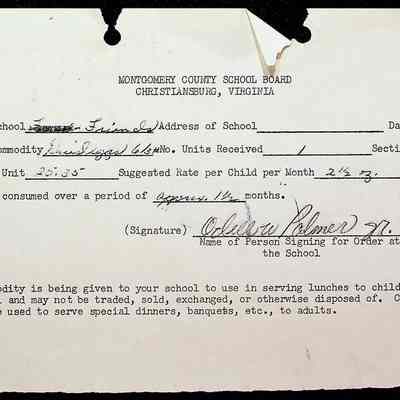 MONTGOMERY COUNTY SCHOOL BOARD
CHRISTIANSBURG, VIRGINIA
chool Friends Address of School Da
mmodity 6 lb No. Units Received 1 Secti
Unit 25.35 Suggested Rate per Child per Month 2½ oz.
consumed over a period of approx. 1½ months.
(Signature) Palmer Jr.
Name of Person Signing for Order at
the School
odity is being given to your school to use in serving lunches to child
and may not be traded, sold, exchanged, or otherwise disposed of. C
e used to serve special dinners, banquets, etc., to adults.